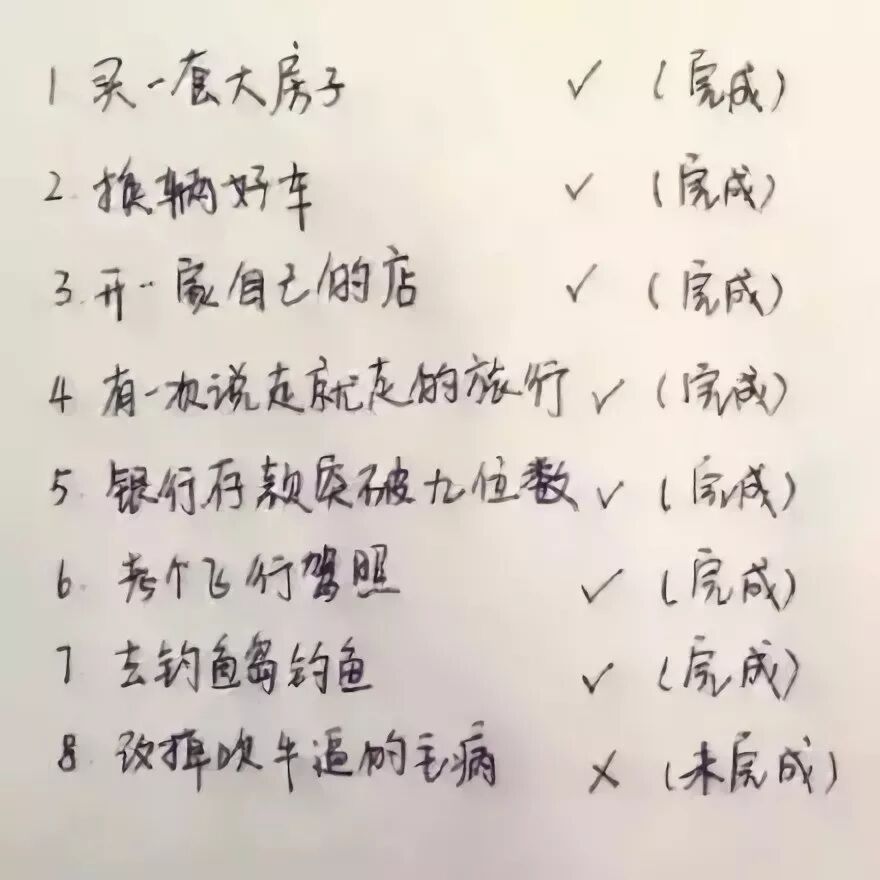 1 买一套大房子 ✓ (完成)
2. 换辆好车 ✓ (完成)
3. 开一家自己的店 ✓ (完成)
4 有一次说走就走的旅行 ✓ (完成)
5. 银行存款突破九位数 ✓ (完成)
6. 考个飞行驾照 ✓ (完成)
7 去钓鱼岛钓鱼 ✓ (完成)
8. 改掉吹牛逼的毛病 × (未完成)